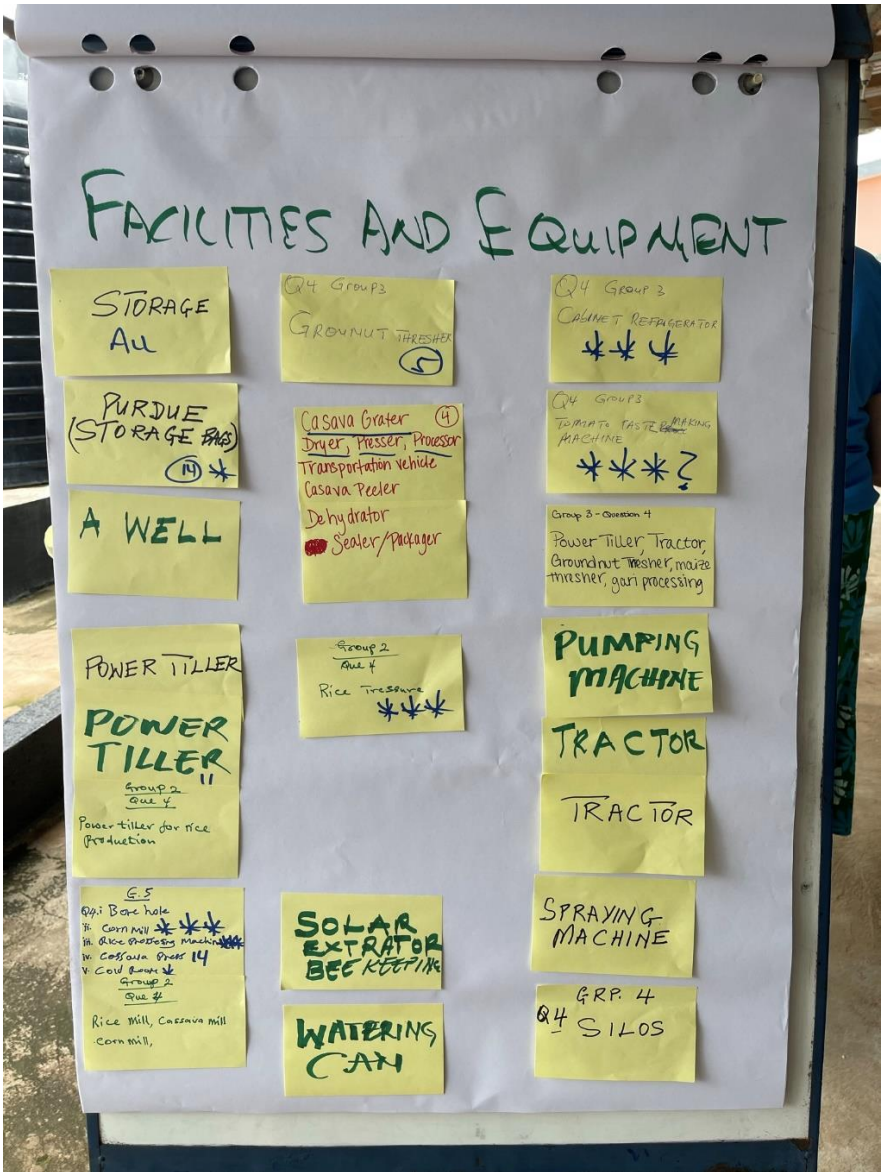 FACILITIES AND EQUIPMENT
STORAGE
All
PURDUE
(STORAGE BAGS)
14 *
A WELL
POWER TILLER
POWER
TILLER
11
Group 2
Que 4
Power tiller for rice
Production
G.5
Q4.i Bore hole
ii. Corn mill * * *
iii. Rice Processing Machine ***
iv. Cassava Press 14
v. Cold Room *
Group 2
Que 4
Rice Mill, Cassava mill
corn mill,
Q4 Group 3
GROUNUT THRESHER
5
Casava Grater 4
Dryer, Presser, Processor
Transportation vehicle
Casava Peeler
Dehydrator
Sealer/Packager
Group 2
Que 4
Rice Tressure
* * *
SOLAR
EXTRATOR
BEE KEEPING
WATERING
CAN
Q4 Group 3
CABINET REFRIGERATOR
* * *
Q4 Group 3
TOMATO PASTE MAKING
MACHINE
* * * ?
Group 3 - Question 4
Power Tiller, Tractor,
Groundnut Thesher, maize
thrasher, gari processing
PUMPING
MACHINE
TRACTOR
TRACTOR
SPRAYING
MACHINE
GRP. 4
Q4 SILOS